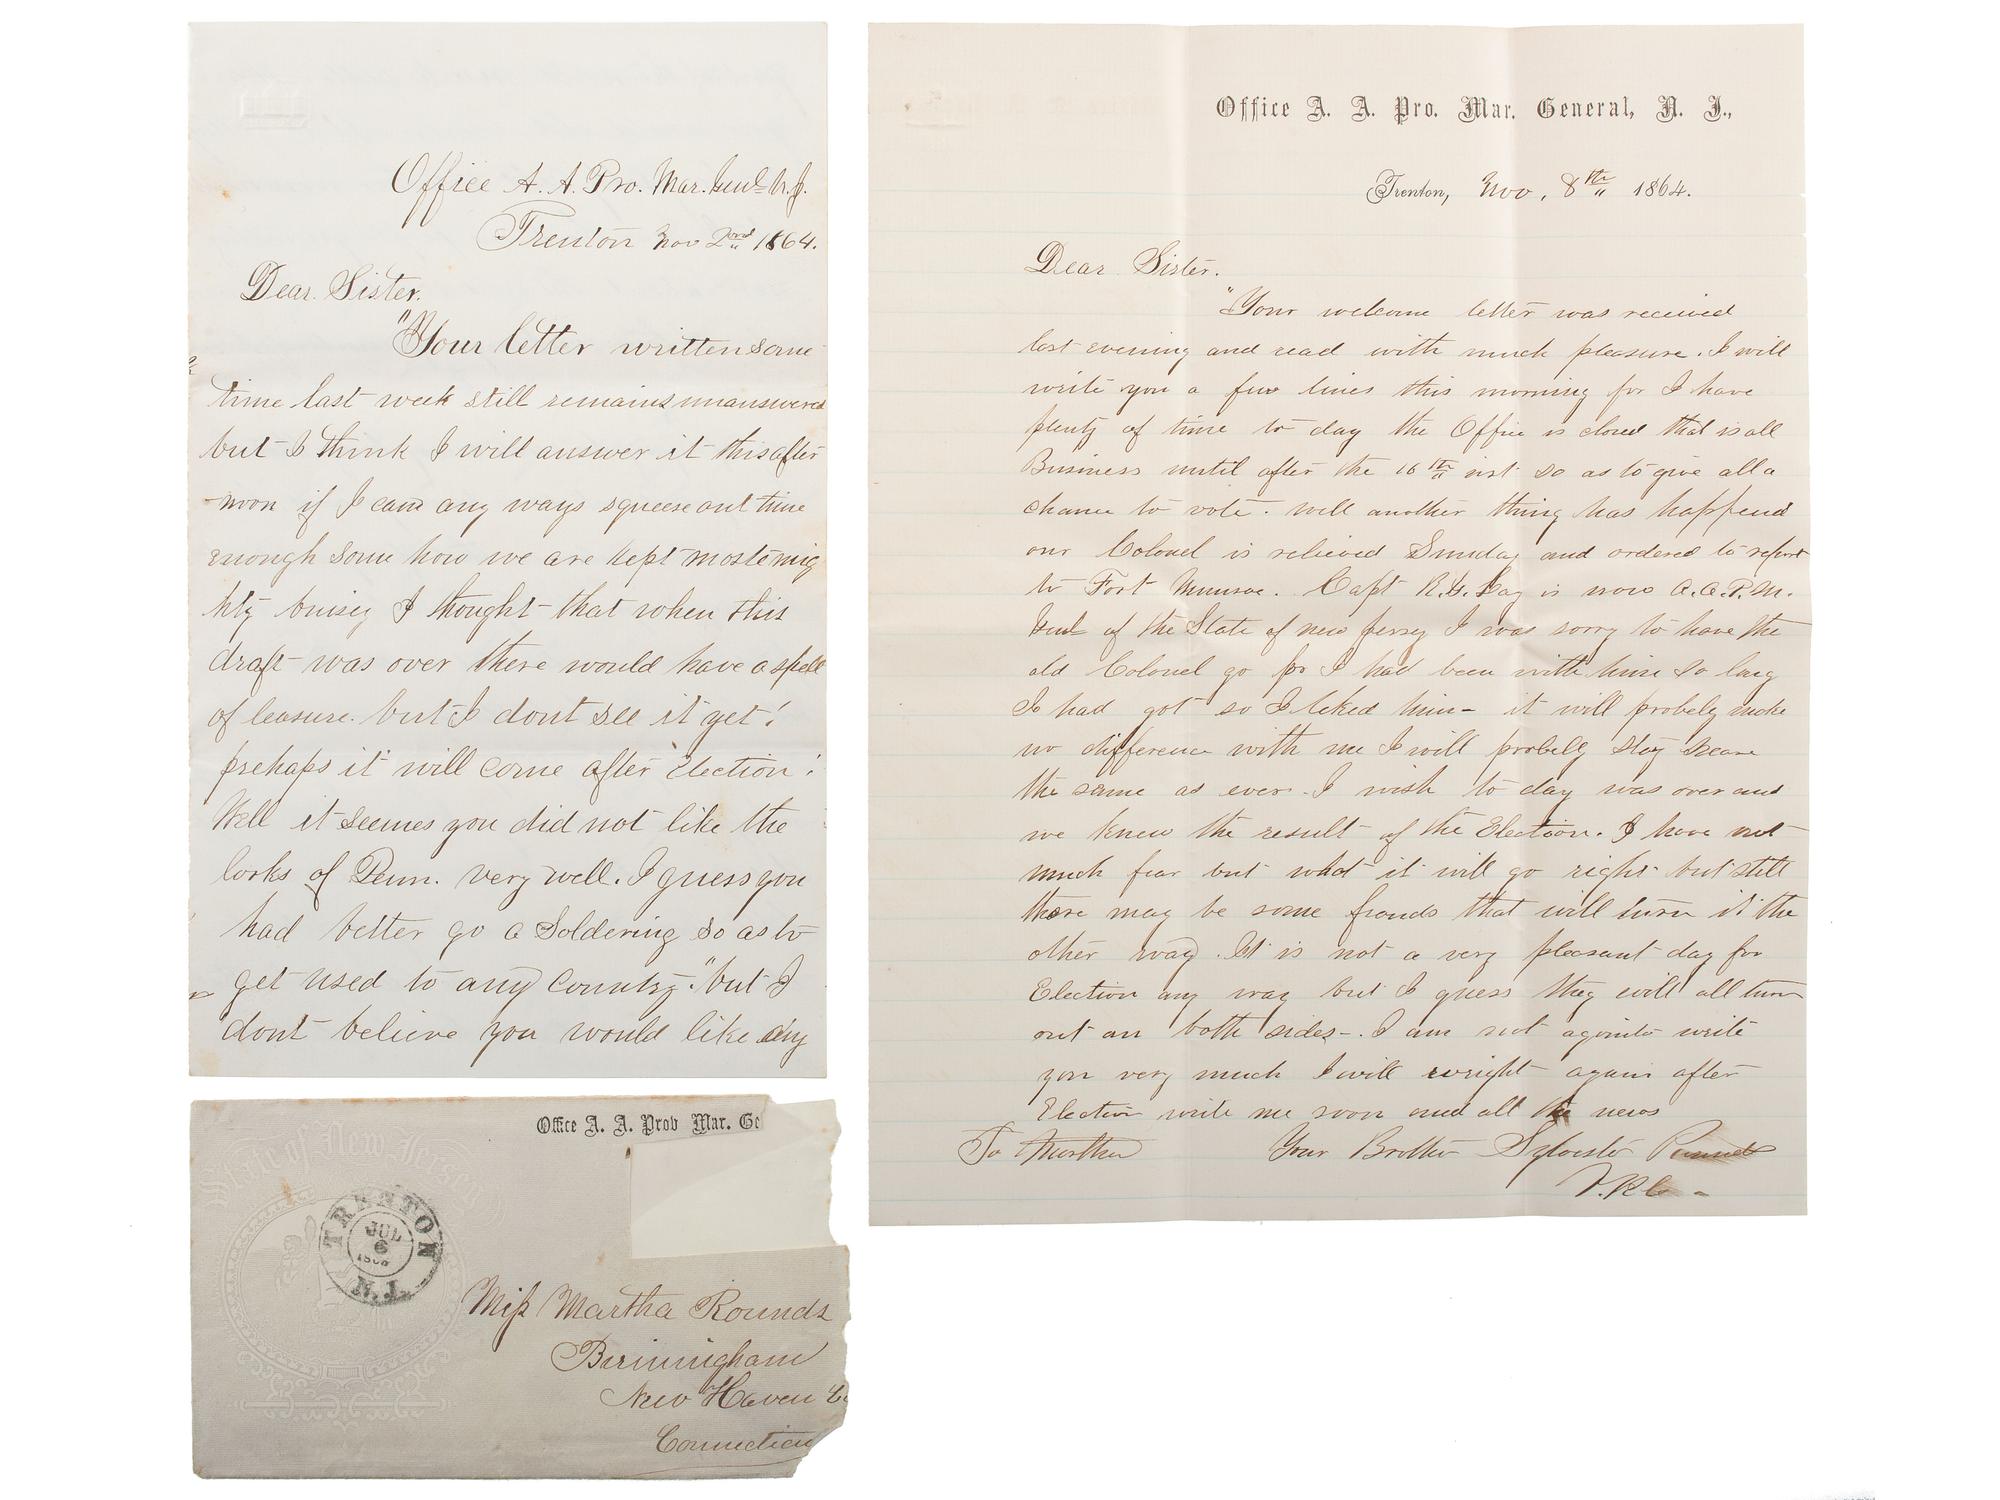 Office A. A. Pro. Mar. Genl. N. J.
Trenton Nov 2nd 1864.
Dear Sister.
"Your letter written some
time last week still remains unanswered
but I think I will answer it this after
noon if I can any ways squeese out time
enough some how we are kept most mig
hty buisy I thought that when this
draft was over there would have a spell
of leasure. but I dont see it yet!
prehaps it will come after Election!
Well it seemes you did not like the
looks of Penn. very well. I guess you
had better go a Soldering so as to
get used to any Country." but I
dont believe you would like any
Office A. A. Pro. Mar. General, N. J.,
Trenton, Nov, 8th 1864.
Dear Sister.
"Your welcome letter was received
last evening and read with much pleasure. I will
write you a few lines this morning for I have
plenty of time to day the Office is closed that is all
Business until after the 10th inst so as to give all a
chance to vote. Well another thing has happend
our Colonel is relieved Sunday and ordered to report
to Fort Munroe. Capt R.H. Day is now A.A.P.M.
Genl of the State of new Jersey I was sorry to have the
old Colonel go for I had been with him so long
I had got so I liked him - it will probely make
no difference with me I will probely stay heare
the same as ever. I wish to day was over and
we knew the result of the Election. I have not
much fear but what it will go right but still
there may be some frauds that will turn it the
other way. It is not a very pleasant day for
Election any way but I guess they will all turn
out on both sides -. I am not agointo write
you very much I will wright again after
Election write me soon and all the news
To Marthea Your Brother Sylvester Rounds
V.R.C -
Office A. A. Prov Mar. Ge
State of New Jersey
TRENTON
JUL
6
N.J.
Miss Martha Rounds
Birmingham
New Haven Co
Connecticu